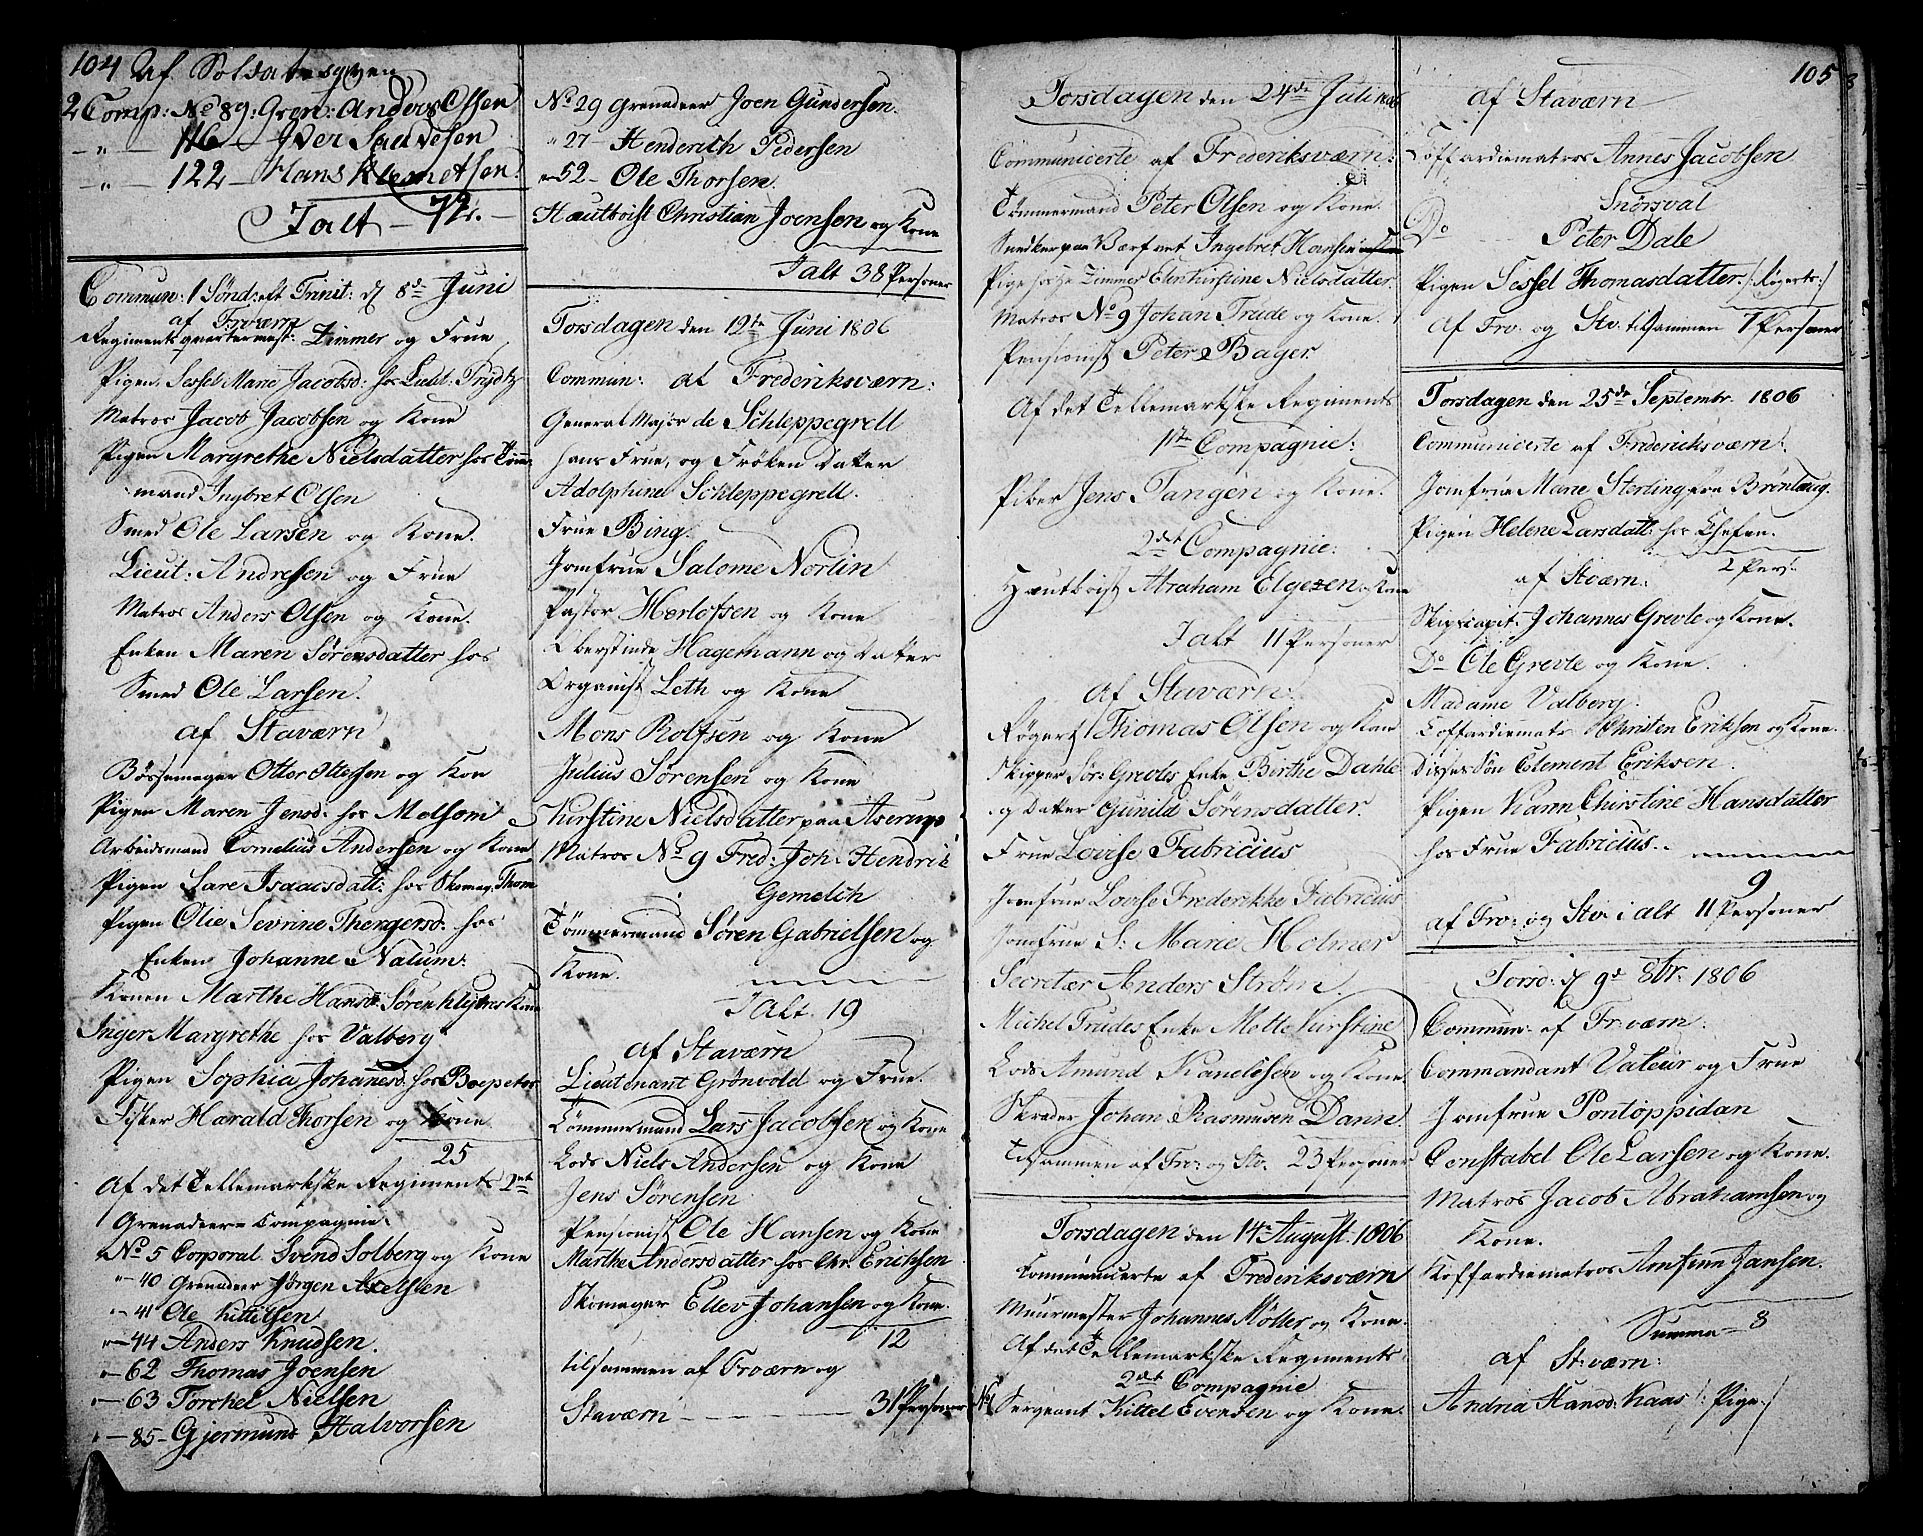 104 Af Soldatesqven
2 Comp: No 89: Gren: Anders Olsen
- " - 116 - Iver Sauvesen
- " - 122 - Hans Klemetsen
I alt - 72. -
Commun: 1 Sønd: eft Trinit: d 8de Juni
af Frværn
Regiments qvartermest: Zimmer og Frue
Pigen Sessel Marie Jacobsd: hos Lieut: Frydtz
Matros Jacob Jacobsen og Kone
Pigen Margrethe Nielsdatter hos Tøm-
mand Ingbret Olsen
Smed Ole Larsen og Kone.
Lieut: Andresen og Frue
Matros Anders Olsen og Kone.
Enken Maren Sørensdatter hos
Smed Ole Larsen.
af Staværn
Bøssemager Otter Ottersen og Kone
Pigen Maren Jensd: hos Molsom
Arbeidsmand Cornelius Andersen og Kone
Pigen Sare Isaacsdatt: hos Skomag. Thom
Pigen Olie Sevrine Thengersd: hos
Enken Johanne Nalum:
Konen Marthe Hansd: Søren Kone
Inger Margrethe hos Valberg
Pigen Sophia Johannesd: hos Boepeter
Fisker Harald Thorsen og Kone
25
Af det Tellemarkske Regiments 2det
Grenadeer-Compagnie.
No 5 Corporal Svend Solberg og Kone
" - 40 Grenadeer Jørgen Axelsen
" - 41 Ole Kittilsen
" - 44 Anders Knudsen.
" - 62 Thomas Joensen
" - 63 Torchel Nielsen
" - 85 - Gjermund Halvorsen
No 29 Grenadeer Joen Gundersen.
" 27 - Henderich Pedersen
" 52 - Ole Thorsen.
Hautboist Christian Joensen og Kone
I alt 38 Personer
Torsdagen den 12te Juni 1806
Commun: af Frederiksværn:
General Major de Schleppegrell
hans Frue, og Frøken Datter
Adolphine Schleppegrell.
Frue Bing.
Jomfrue Salome Norlin
Pastor Herlofsen og Kone
Oberstinde Hagemann og Datter
Organist Leth og Kone
Mons Rolfsen og Kone
Julius Sørensen og Kone
Kirstine Nielsdatter paa Agerups
Matros No 9 Fred: Joh: Hendrik
Gemelch
Tømmermand Søren Gabrielsen og
Kone.
I Alt. 19
Af Staværn
Lieutenant Grønvold og Frue.
Tømmermand Lars Jacobsen og Kone
Lods Niels Andersen og Kone
Jens Sørensen
Pensionist Ole Hansen og Kone
Marthe Andersdatter hos Chr. Erichsen
Skomager Ellev Johansen og Kone.
12
tilsammen af Frværn og
Staværn - - - - - 31 Personer
Torsdagen den 24de Juli 1806
Communicerte af Frederiksværn:
Tømmermand Peter Olsen og Kone.
Snedker paa Værfvet Ingebret Hansen
Pige hos Hr Zimmer Elen Kirstine Nielsdatter
Matros No 9 Johan Trude og Kone.
Pensionist Peter Bager
Af det Tellemarkske Regiments
1ste Compagnie:
Piber Jens Tangen og Kone.
2det Compagnie:
Hautboist Abraham Elgesen og Kone
I alt 11 Personer
Af Staværn
Røgert Thomas Olsen og Kone
Skipper Sør: Grevles Enke Birthe Dahle
og Datter Gunild Sørensdatter.
Frue Lovise Fabricius
Jomfrue Lovise Frederikke Fabricius
Jomfrue S: Marie Holmer
Secretær Anders Strøm.
Michel Trudes Enke Mette Kirstine
Lods Amund Kanelsen og Kone.
Skræder Johan Rasmusen Dann.
Tilsammen af Fr: og St: 23 Personer
Torsdagen den 14de August. 1806
Communicerte af Frederiksværn
Muurmester Johannes Møller og Kone.
Af det Tellemarkske Regiments
2det Compagnie
No 1 Sergeant Kittel Evensen og Kone.
105
Af Staværn
Coffardiematros Annes Jacobsen
Snørsval
Do Peter Dale
Pigen Sessel Thomasdatter /: Røgerts :/
Af Frv. og Stv. tilsammen 7 Personer
Torsdagen den 25de Septembr. 1806
Communicerte af Frederiksværn:
Jomfrue Marie Sterling fra Brønlaug.
Pigen Helene Larsdatt: hos Chefen.
2 Pers:
af Stværn:
Skipscapit. Johannes Grevle og Kone.
Do Ole Grevle og Kone.
Madame Valberg.
Coffardiematr Christen Eriksen og Kone.
Disses Søn Clement Eriksen.
Pigen Kann Chirstine Hansdatter
hos Frue Fabricius.
9
af Frv: og Stv: i alt 11 Personer
Torsd: d 9de 8br. 1806
Commun: af Fr:værn:
Commandant Valeur og Frue
Jomfrue Pontoppidan
Constabel Ole Larsen og Kone.
Matros Jacob Abrahamsen og
Kone.
Koffardiematros Amfinn Jansen.
Summa - 8
af St:værn:
Andria Hansd: Kaas /: Pige :/